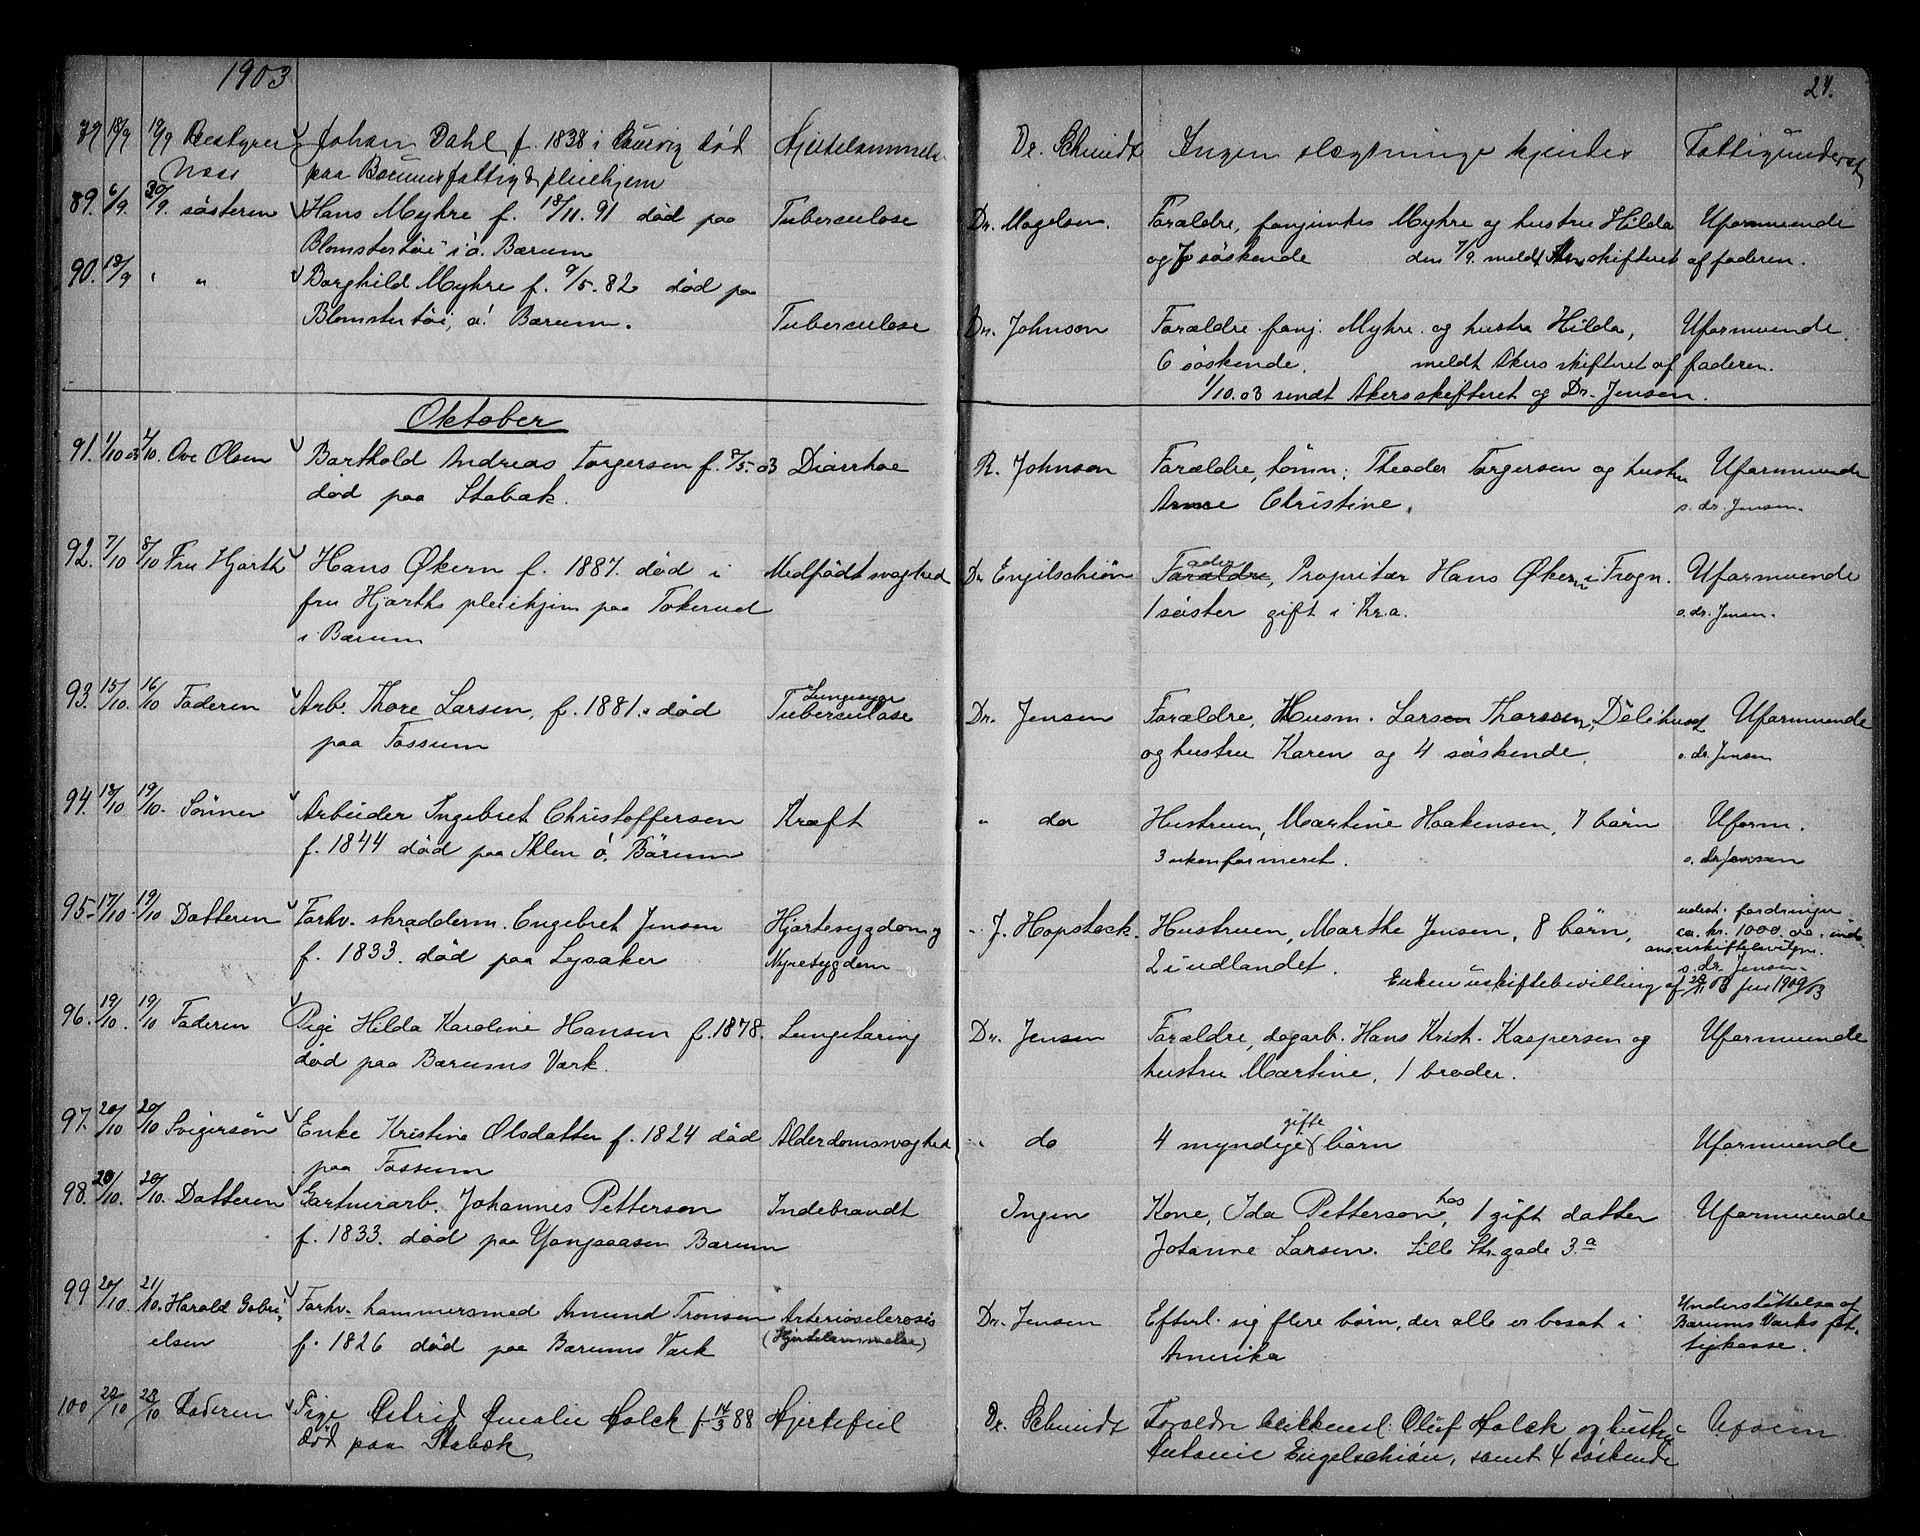 1903
24.
79 18/9 19/9 Bestyrer Johan Dahl f. 1838 i død Hjertelammelse Dr. Schmidt Ingen slægtninge kjendes Fattigunderst
Næss paa Bærums fattig & pleiehjem
89. 6/9. 30/9. søsteren Hans Myhre f. 18/11. 91 død paa Tuberculose Dr. Magelsen. Forældre, Myhre og hustru Hilda Uformuende
Blomsterløi i ø. Bærum og 7 søskende den 7/9. meldt skifteret af faderen.
90. 18/9 " " Borghild Myhre f. 9/5. 82 død paa
Blomsterløi, ø. Bærum. Tuberculose Dr. Johnson Forældre Myhre og hustru Hilda, Uformuende.
6 søskende. meldt Akers skifteret af faderen.
1/10. 03 sendt Akers skifteret og Dr. Jensen.
Oktober
91. 1/10 03 2/10. Ove Olsen Barthold Andreas Torgersen f. 8/5. 03 Diarrhoe R. Johnson Forældre, tømm. Theodor Torgersen og hustru Uformuende
død paa Stabæk. Anne Christine. s. dr. Jensen.
92. 7/10 8/10 Fru Hjorth Hans Økern f. 1887. død i Medfødt svaghed Dr Engelschiøn Forældre, ader Propritær Hans Økern i Frogn. Uformuende
fru Hjorths pleiehjem paa Tokerud 1 søster gift i Kr.a. s. dr. Jensen.
i Bærum
93. 15/10. 16/10 Faderen Arb. Thore Larsen, f. 1881. død Tuberculose Lungesyge Dr. Jensen Forældre, Husm. Larsen Thorssen, Dælihuset Uformuende
paa Fossum og hustru Karen og 4 søskende. s. dr. Jensen
94. 18/10 19/10. Sønnen Arbeider Ingebret Christoffersen Kræft " do Hustruen, Martine Haakensen, 7 børn Uform.
f. 1844 død paa ø. Bærum 3 ukonfirmeret. s. dr. Jensen
95. 17/10. 19/10 Datteren Forhv. skrædderm. Engebret Jensen Hjertesygdom og " J. Hopstock. Hustruen, Marthe Jensen, 8 børn, udest. fordringer
f. 1833. død paa Lysaker Nyresygdom 2 i udlandet. ca. kr. 1000.00.
uskiftebevilgn.
s. dr. Jensen.
Enken uskiftebevilling af 1909/03
96. 19/10. 19/10 Faderen Pige Hilda Karoline Hansen f. 1878. Lungetæring Dr. Jensen Forældre, dagarb. Hans Krist. Kaspersen og Uformuende
død paa Bærums Værk. hustru Martine, 1 broder.
97. 20/10 20/10 Svigersøn Enke Kristine Olsdatter f. 1824 død Alderdomssvaghed " do 4 myndige gifte børn Uformuende
paa Fossum
98. 20/10. 20/10. Datteren Gartnerarb. Johannes Petterson Indebrandt Ingen Kone, Ida Petterson, hos 1 gift datter Uformuende
f. 1833. død paa Bærum Johanne Larsen. Lille Str. gade 3.a
99 20/10. 21/10. Harald Gabri Forhv. hammersmed Amund Tronsen Arteriosclerosis Dr. Jensen Efterl. sig flere børn, der alle er bosat i Understøttelse af
elsen f. 1826 død paa Bærums Værk (Hjertelammelse) Amerika Bærums Værks fat-
tigkasse.
100 22/10 23/10 Faderen Pige Astrid Amalie Holck f. 14/3 88 Hjertefeil Dr. Schmidt Forældre blikkensl. Oluf Holck og hustru Uform
død paa Stabæk Antonie Engelschiøn, samt 4 søskende